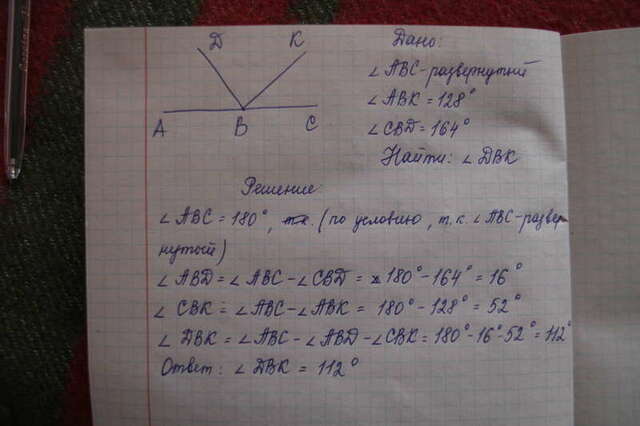 D K
A B C
Дано:
∠ABC-развернутый
∠ABK = 128°
∠CBD = 164°
Найти: ∠DBK
Решение:
∠ABC = 180°, т.к. (по условию, т.к. ∠ABC-развер
нутый)
∠ABD = ∠ABC - ∠CBD = 180° - 164° = 16°
∠CBK = ∠ABC - ∠ABK = 180° - 128° = 52°
∠DBK = ∠ABC - ∠ABD - ∠CBK = 180° - 16° - 52° = 112°
Ответ: ∠DBK = 112°